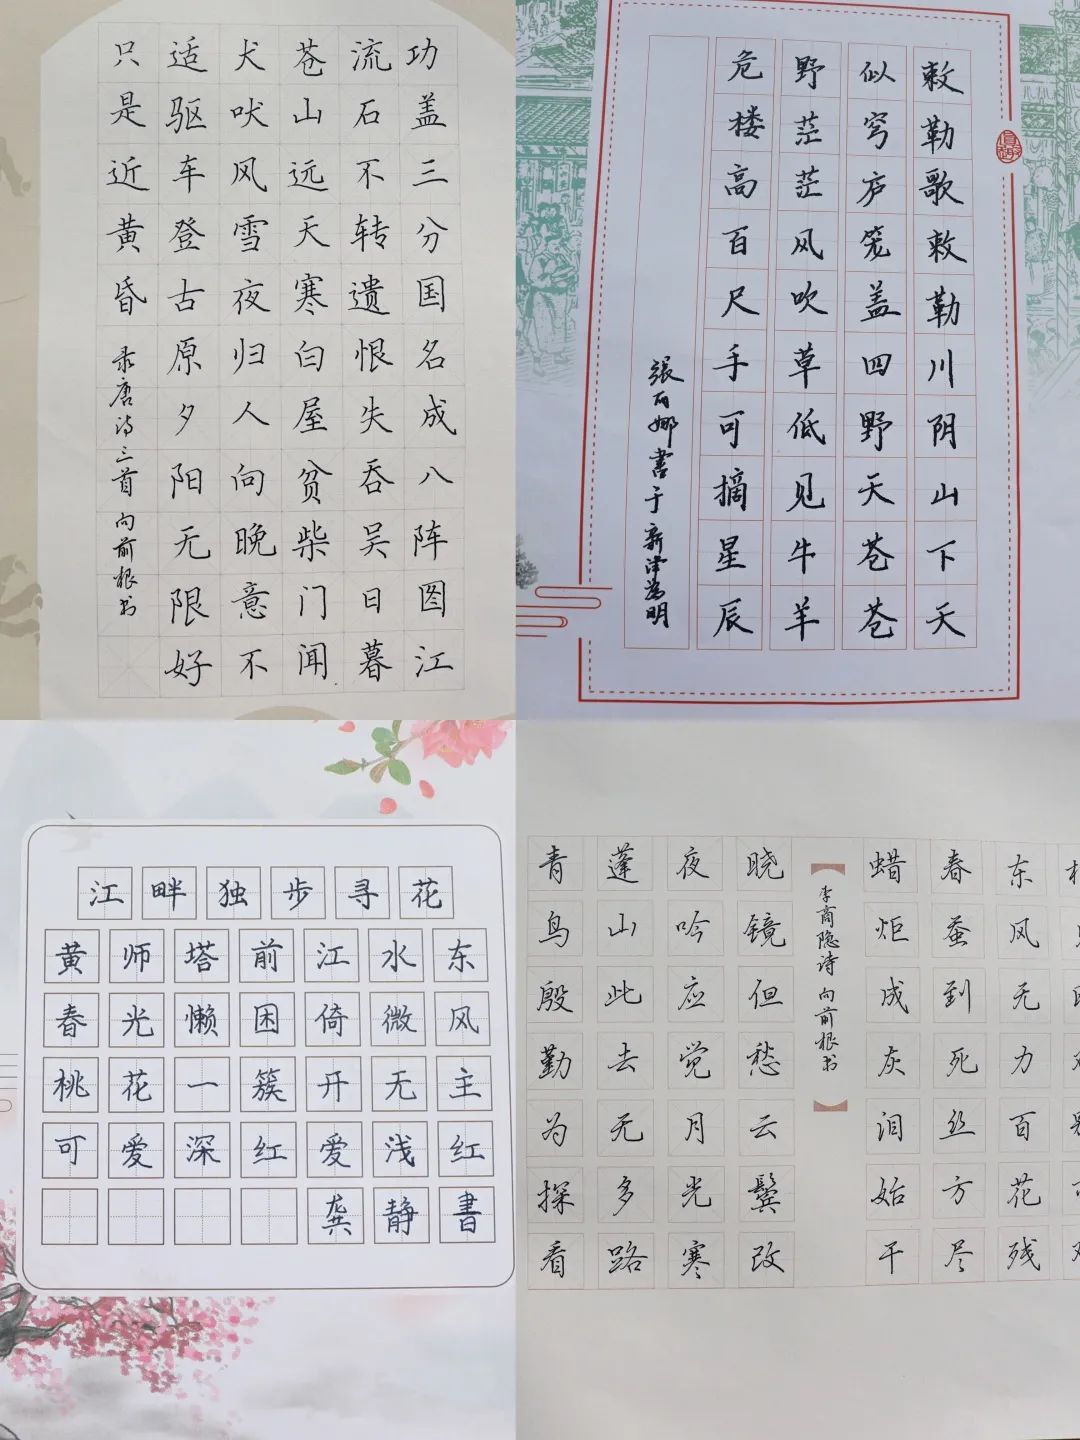 功盖三分国名成八阵图江
流石不转遗恨失吞吴日暮
苍山远天寒白屋贫柴门闻
犬吠风雪夜归人向晚意不
适驱车登古原夕阳无限好
只是近黄昏 录唐诗三首 向前根书
敕勒歌敕勒川阴山下天
似穹庐笼盖四野天苍苍
野茫茫风吹草低见牛羊
危楼高百尺手可摘星辰
張丽娜書于新津為明
江畔独步寻花
黄师塔前江水东
春光懒困倚微风
桃花一簇开无主
可爱深红爱浅红
龚静書
东风无力百花残
春蚕到死丝方尽
蜡炬成灰泪始干
李商隐诗 向前根书
晓镜但愁云鬓改
夜吟应觉月光寒
蓬山此去无多路
青鸟殷勤为探看